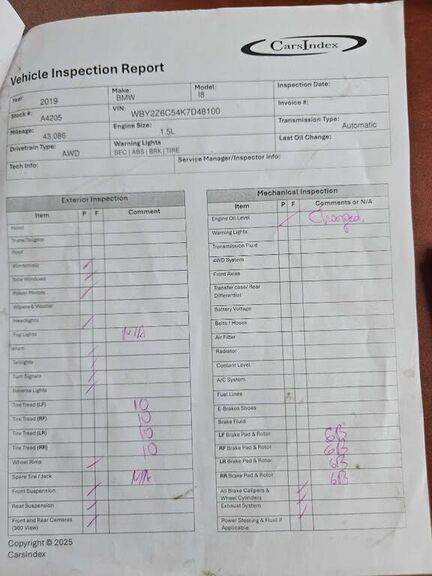 CarsIndex
Vehicle Inspection Report
Year: 2019 Make: BMW Model: I8 Inspection Date:
Stock #: A4205 VIN: WBY2Z6C54K7D48100 Invoice #:
Mileage: 43,086 Engine Size: 1.5L Transmission Type: Automatic
Drivetrain Type: AWD Warning Lights SEC | ABS | BRK | TIRE Last Oil Change:
Tech Info: Service Manager/Inspector Info:
Exterior Inspection
Item P F Comment
Hood
Trunk/Tailgate
Roof
Windshield
Side Windows
Power Mirrors
Wipers & Washer
Headlights
Fog Lights N/A
Horn
Taillights
Turn Signals
Reverse Lights
Tire Tread (LF) 10
Tire Tread (RF) 10
Tire Tread (LR) 10
Tire Tread (RR) 10
Wheel Rims
Spare Tire / Jack N/A
Front Suspension
Rear Suspension
Front and Rear Cameras
(360 View)
Mechanical Inspection
Item P F Comments or N/A
Engine Oil Level Changed.
Warning Lights
Transmission Fluid
4WD System
Front Axles
Transfer case/ Rear
Differential
Battery Voltage
Belts / Hoses
Air Filter
Radiator
Coolant Level
A/C System
Fuel Lines
E-Brakes Shoes
Brake Fluid
LF Brake Pad & Rotor 6B
RF Brake Pad & Rotor 6B
LR Brake Pad & Rotor 6B
RR Brake Pad & Rotor 6B
All Brake Calipers &
Wheel Cylinders
Exhaust System
Power Steering & Fluid if
Applicable
Copyright © 2025
CarsIndex